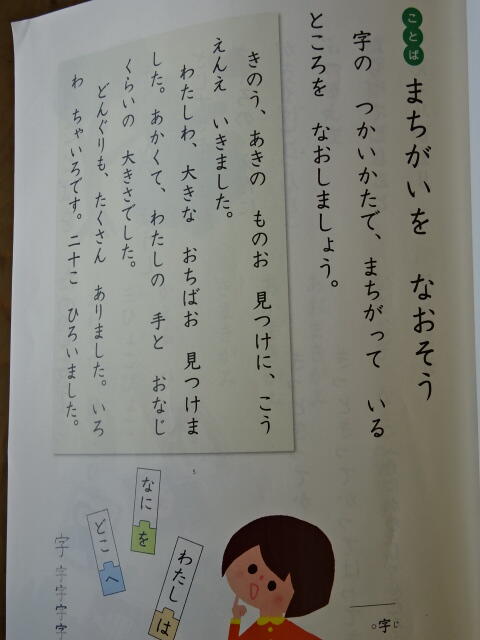 ことば
まちがいを　なおそう
字の　つかいかたで、まちがって　いる
ところを　なおしましょう。
きのう、あきの　ものお　見つけに、こう
えんえ　いきました。
わたしわ、大きな　おちばお　見つけま
した。あかくて、わたしの　手と　おなじ
くらいの　大きさでした。
どんぐりも、たくさん　ありました。いろ
わ　ちゃいろです。二十こ　ひろいました。
なにを
どこへ
わたしは
字
じ
字。
字
字
字
字